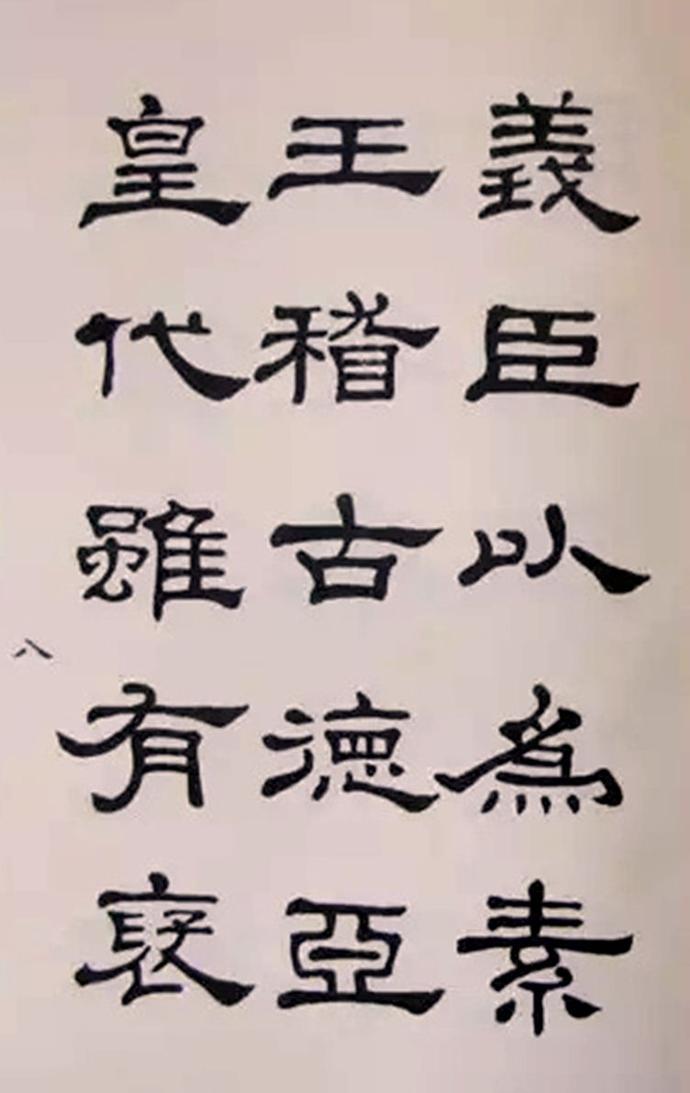 義臣以為素
王稽古德亞
皇代雖有襃
八